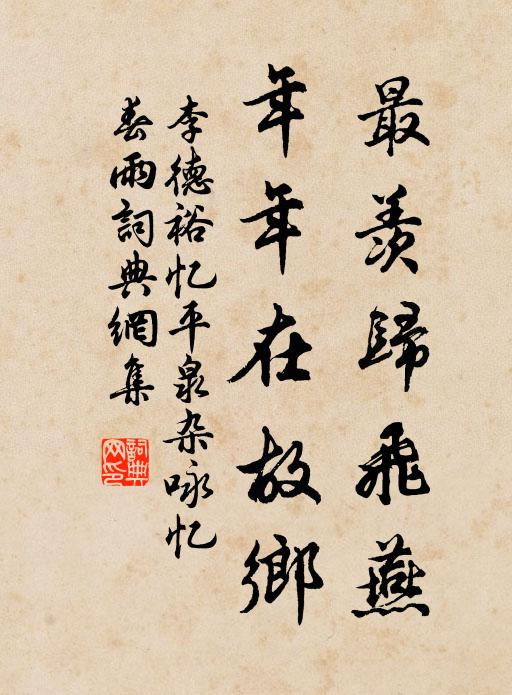 最羨歸飛燕
年年在故鄉
李德裕忆平泉杂咏忆
春雨詞典網集
詞典
网印